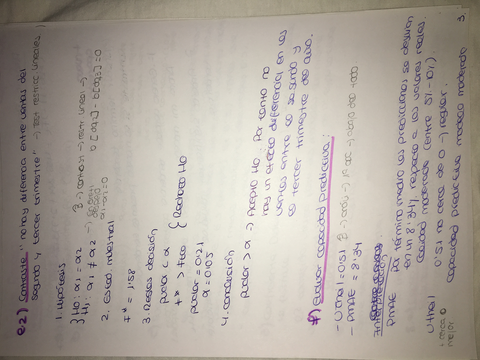 e2) Contraste "no hay diferencia entre ventas del
segundo y tercer trimestre" → test restricc lineales
1. Hipótesis
H0: α1 = α2
H1: α1 ≠ α2
α1 - α2 = 0
b[ ] - b[ ] = 0
2. Estad muestral
F* = 1'58
3. Reglas decisión
pvalor < α
F* > Ftco { Rechazo H0
pvalor = 0'21
α = 0'05
4. Conclusión
pvalor > α → Acepto H0. Por tanto no
hay un efecto diferencial en las
ventas entre el segundo y
el tercer trimestre del año.
f) Evaluar capacidad predictiva:
- U theil = 0'51
- PMAE = 8'34
Interpretación
PMAE Por término medio las predicciones se desvían
en un 8'34% respecto a los valores reales.
Calidad moderada (entre 5% - 10%)
U theil 0'51 no cerca de 0 → regular.
cerca 0 mejor
capacidad predictiva modelo moderado
3